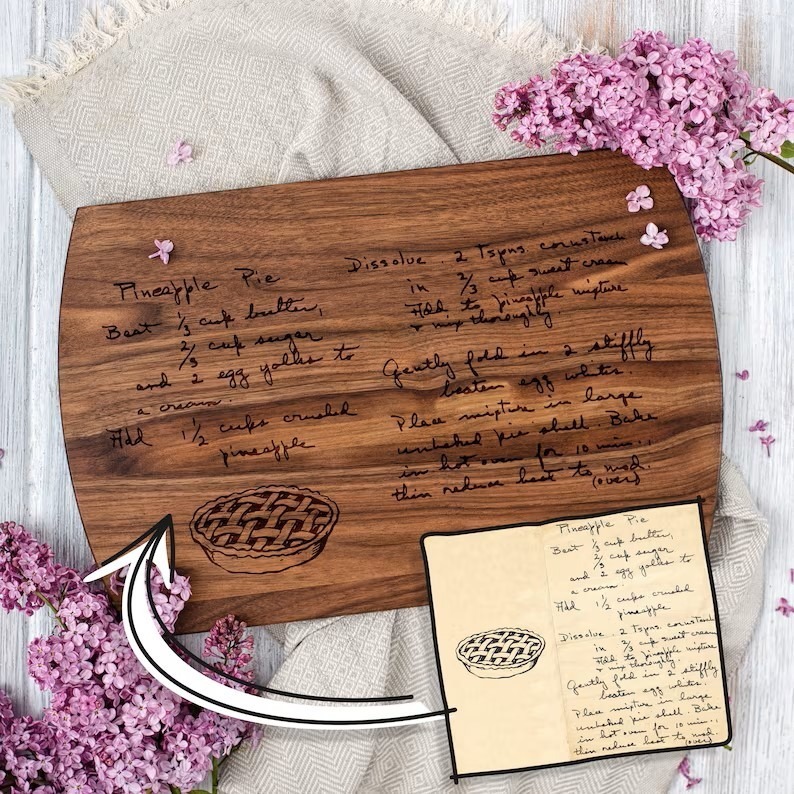 Pineapple Pie
Beat 1/3 cup butter,
2/3 cup sugar
and 2 egg yolks to
a cream.
Add 1 1/2 cups crushed
pineapple
Dissolve . 2 Tspns. cornstarch
in 2/3 cup sweet cream
Add to pineapple mixture
& mix thoroughly.
Gently fold in 2 stiffly
beaten egg whites.
Place mixture in large
unbaked pie shell. Bake
in hot oven for 10 min..,
then reduce heat to mod.
(over)
Pineapple Pie
Beat 1/3 cup butter,
2/3 cup sugar
and 2 egg yolks to
a cream
Add 1 1/2 cups crushed
pineapple
Dissolve . 2 Tspns. cornstarch
in 2/3 cup sweet cream
Add to pineapple mixture
& mix thoroughly.
Gently fold in 2 stiffly
beaten egg whites.
Place mixture in large
unbaked pie shell. Bake
in hot oven for 10 min..,
then reduce heat to mod.
(over)